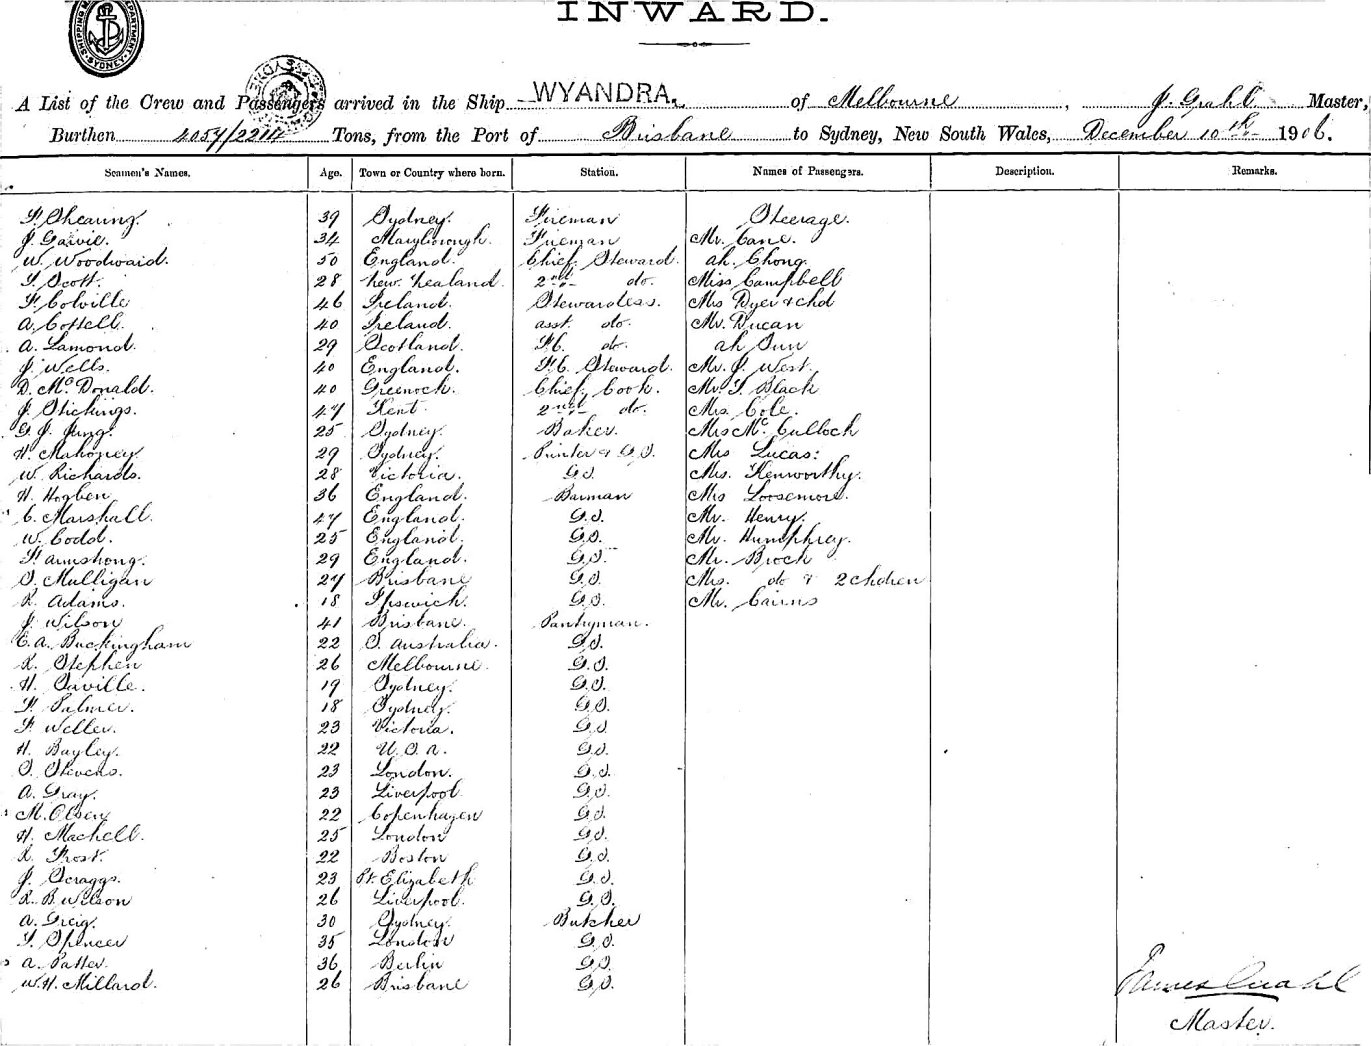 INWARD.
SHIPPING DEPARTMENT SYDNEY
A List of the Crew and Passengers arrived in the Ship WYANDRA. of Melbourne, J. Grahl Master,
Burthen 4057/2214 Tons, from the Port of Brisbane to Sydney, New South Wales, December 10th 1906.
Seamen's Names. Age. Town or Country where born. Station. Names of Passengers. Description. Remarks.
F. Shearing. 39 Sydney. Fireman Steerage.
J. Garvie. 34 Maryborough. Fireman Mr. Cane.
W. Woodward. 50 England. Chief Steward. ah Chong
T. Scott. 28 New Zealand. 2nd do. Miss Campbell
F. Colville 46 Ireland. Stewardess. Mrs Dyer & chd
A. Cottell. 40 Ireland. asst. do. Mr. Ducan
A. Lamond. 29 Scotland. F.C. do. ah Sun
J. Wells. 40 England. F.C. Steward. Mr. J. West.
D. McDonald. 40 Greenock. Chief Cook. Mr. T. Black
J. Stickings. 47 Kent. 2nd do. Mrs Cole.
G. J. Jung. 25 Sydney. Baker. Mrs McCulloch
H. Mahoney. 29 Sydney. Printer & G.S. Mrs Lucas:
W. Richards. 28 Victoria. G.S. Mrs. Kenworthy.
H. Hogben 36 England. Barman Mrs Loosemore.
C. Marshall. 47 England. G.S. Mr. Henry.
W. Codd. 25 England. G.S. Mr. Humphrey.
F. Armstrong. 29 England. G.S. Mr. Brock
S. Mulligan 27 Brisbane G.S. Mrs. do & 2 chdren
R. Adams. 18 Ipswich. G.S. Mr. Cairns
J. Wilson 41 Brisbane. Pantryman.
E. A. Buckingham 22 S. Australia. G.S.
R. Stephen 26 Melbourne. G.S.
H. Saville. 19 Sydney. G.S.
F. Palmer. 18 Sydney. G.S.
F. Weller. 23 Victoria. G.S.
H. Bayley. 22 U.S.A. G.S.
S. Stevens. 23 London. G.S.
A. Gray. 23 Liverpool G.S.
M. Olsen 22 Copenhagen G.S.
H. Machell. 25 London G.S.
R. Frost. 22 Boston G.S.
J. Scraggs. 23 Pt. Elizabeth G.S.
R. B. Wilson 26 Liverpool. G.S.
A. Greig. 30 Sydney. Butcher
T. Spencer 35 London G.S.
A. Patter. 36 Berlin G.S.
W. H. Millard. 26 Brisbane G.S.
James Grahl
Master.